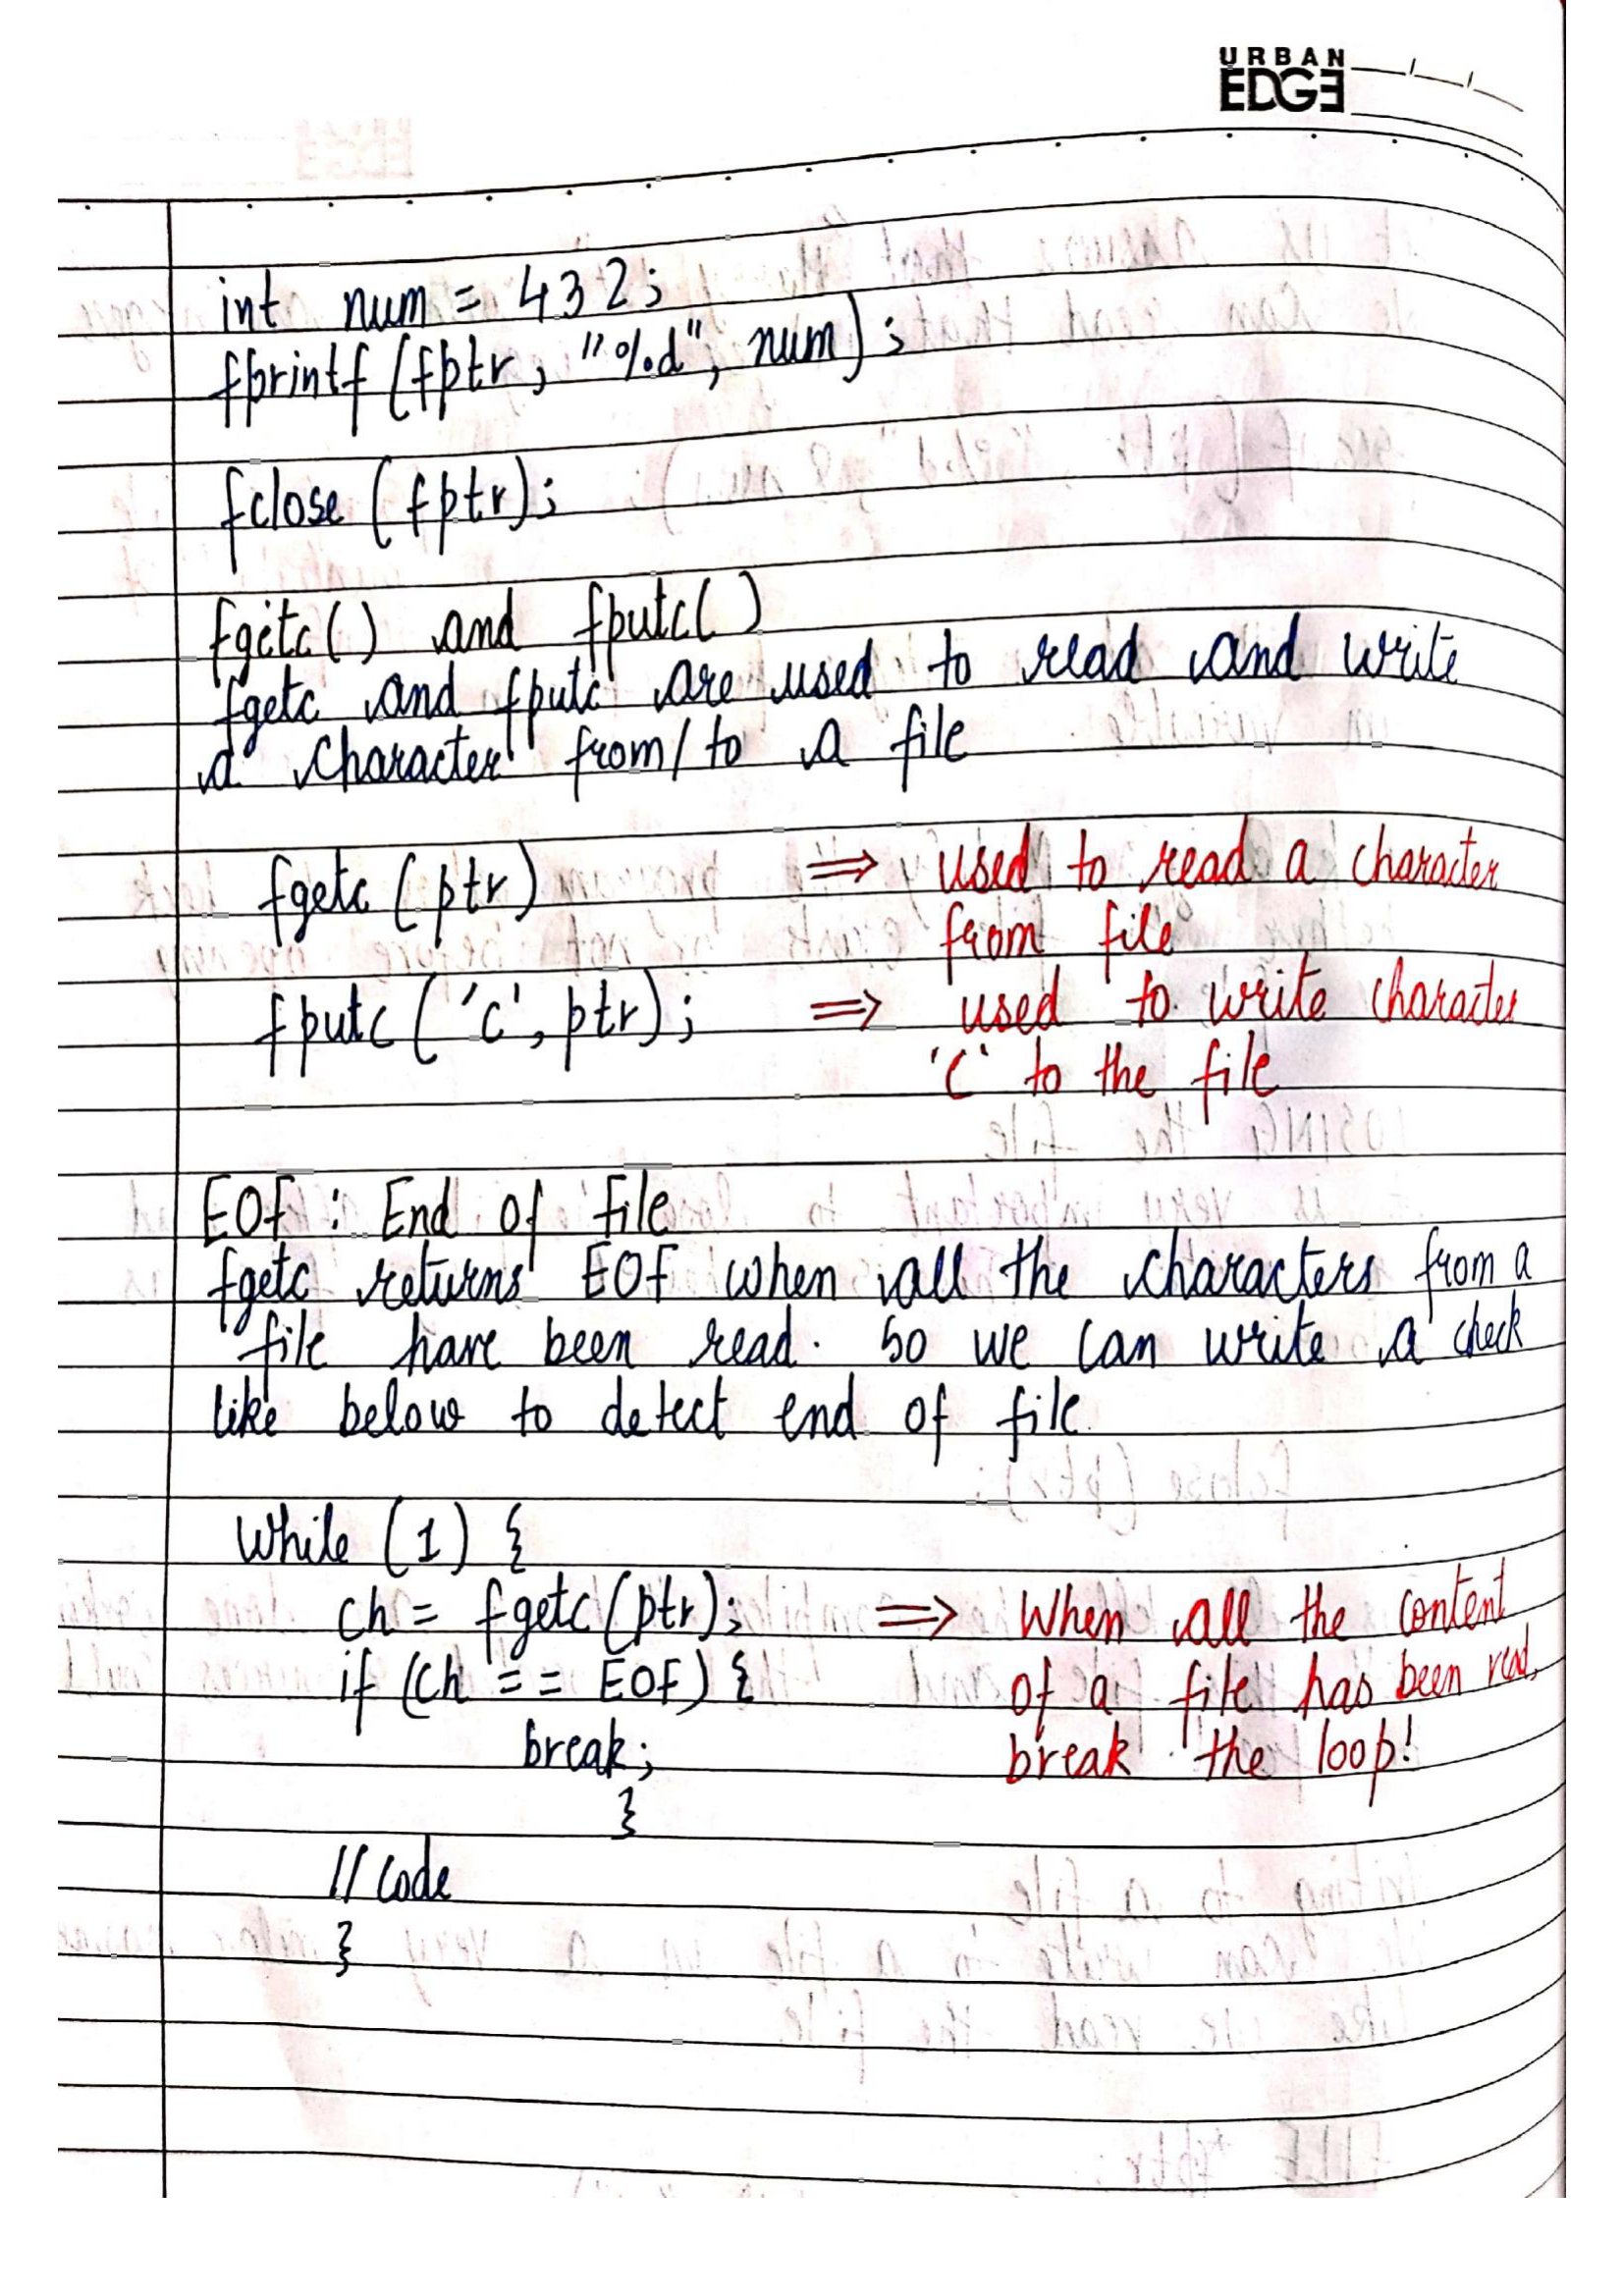 URBAN
EDGE
int num = 432;
fprintf (fptr, "%d", num);
fclose (fptr);
fgetc() and fputc()
fgetc and fputc are used to read and write
a character from/to a file
fgetc (ptr) ⇒ used to read a character
from file
fputc ('c', ptr); ⇒ used to write character
'c' to the file
EOF : End of File
fgetc returns EOF when all the characters from a
file have been read. So we can write a check
like below to detect end of file.
While (1) {
ch = fgetc (ptr); ⇒ When all the content
if (ch == EOF) { of a file has been read,
break; break the loop!
}
// Code
}